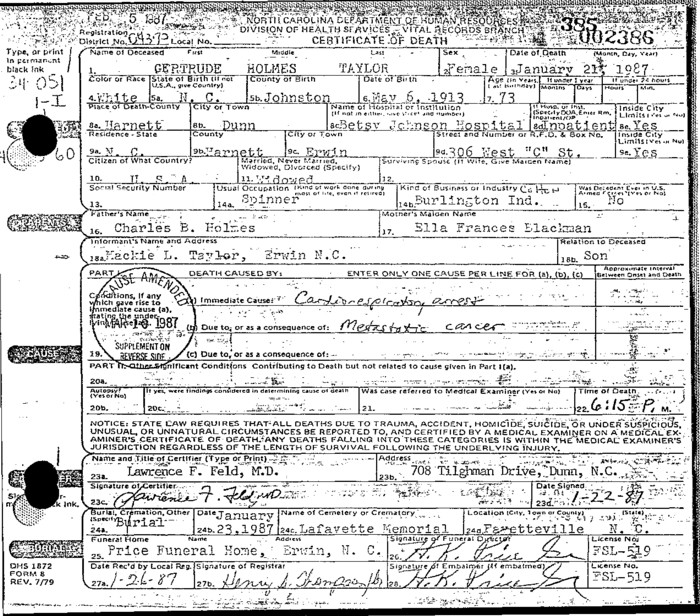 FEB 5 1987
NORTH CAROLINA DEPARTMENT OF HUMAN RESOURCES
DIVISION OF HEALTH SERVICES - VITAL RECORDS BRANCH
CERTIFICATE OF DEATH
385
002386
Registration District No. 043-93 Local No.
Type, or print in permanent black ink
34-051
1-I
60
Name of Deceased First Middle Last Sex Date of Death (Month, Day, Year)
1. GERTRUDE HOLMES TAYLOR 2. Female 3. January 21, 1987
Color or Race State of Birth (If not U.S.A., give Country) County of Birth Date of Birth Age (in Years last birthday) If under 1 year Months Days If under 24 hours Hours Min.
4. White 5a. N. C. 5b. Johnston 6. May 6, 1913 7. 73
Place of Death-County City or Town Name of Hospital or Institution (If not in either, give street and number) If Hosp. or Inst. (Specify DOA, Emer Rm, Inpatient/OP) Inside City Limits (Yes or No)
8a. Harnett 8b. Dunn 8c. Betsy Johnson Hospital 8d. Inpatient 8e. Yes
Residence - State County City or Town Street and Number or R.F.D. & Box No. Inside City Limits (Yes or No)
9a. N. C. 9b. Harnett 9c. Erwin 9d. 306 West "C" St. 9e. Yes
Citizen of What Country? Married, Never Married, Widowed, Divorced (Specify) Surviving Spouse (If Wife, Give Maiden Name)
10. U S A 11. Widowed 12.
Social Security Number Usual Occupation (Kind of work done during most of life, even if retired) Kind of Business or Industry Cotton Was Decedent Ever in U.S. Armed Forces? (Yes or No)
13. 14a. Spinner 14b. Burlington Ind. 15. No
Father's Name Mother's Maiden Name
16. Charles B. Holmes 17. Ella Frances Blackman
Informant's Name and Address Relation to Deceased
18a. Mackie L. Taylor, Erwin N.C. 18b. Son
PART I DEATH CAUSED BY: ENTER ONLY ONE CAUSE PER LINE FOR (a), (b), (c) Approximate Interval Between Onset and Death
CAUSE AMENDED
MAR 10 1987
SUPPLEMENT ON REVERSE SIDE
Conditions, if any which gave rise to immediate cause (a), stating the under-
(a) Immediate Cause: Cardiorespiratory arrest
(b) Due to, or as a consequence of: Metastatic cancer
CAUSE
19. (c) Due to, or as a consequence of:
PART II. Other Significant Conditions Contributing to Death but not related to cause given in Part I(a).
20a.
Autopsy? (Yes or No) If yes, were findings considered in determining cause of death Was case referred to Medical Examiner (Yes or No) Time of Death
20b. 20c. 21. 22. 6:15 P. M.
NOTICE: STATE LAW REQUIRES THAT ALL DEATHS DUE TO TRAUMA, ACCIDENT, HOMICIDE, SUICIDE, OR UNDER SUSPICIOUS,
UNUSUAL, OR UNNATURAL CIRCUMSTANCES BE REPORTED TO, AND CERTIFIED BY A MEDICAL EXAMINER ON A MEDICAL EX-
AMINER'S CERTIFICATE OF DEATH. ANY DEATHS FALLING INTO THESE CATEGORIES IS WITHIN THE MEDICAL EXAMINER'S
JURISDICTION REGARDLESS OF THE LENGTH OF SURVIVAL FOLLOWING THE UNDERLYING INJURY.
Name and Title of Certifier (Type or Print) Address
23a. Lawrence F. Feld, M.D. 23b. 708 Tilghman Drive, Dunn, N.C.
Signature of Certifier Date Signed
23c. Lawrence F. Feld MD 23d. 1-22-87
Burial, Cremation, Other (Specify) Date Name of Cemetery or Crematory Location (City, Town or County) (State)
24a. Burial 24b. January 23,1987 24c. Lafayette Memorial 24d. Fayetteville N. C.
BURIAL
Funeral Home Name Address Signature of Funeral Director License No.
25. Price Funeral Home, Erwin, N. C. 26. H. K. Price Jr FSL-519
DHS 1872
FORM 8
REV. 7/79
Date Rec'd by Local Reg. Signature of Registrar Signature of Embalmer (If embalmed) License No.
27a. 1-26-87 27b. Henry S. Thompson 28. H. K. Price Jr FSL-519